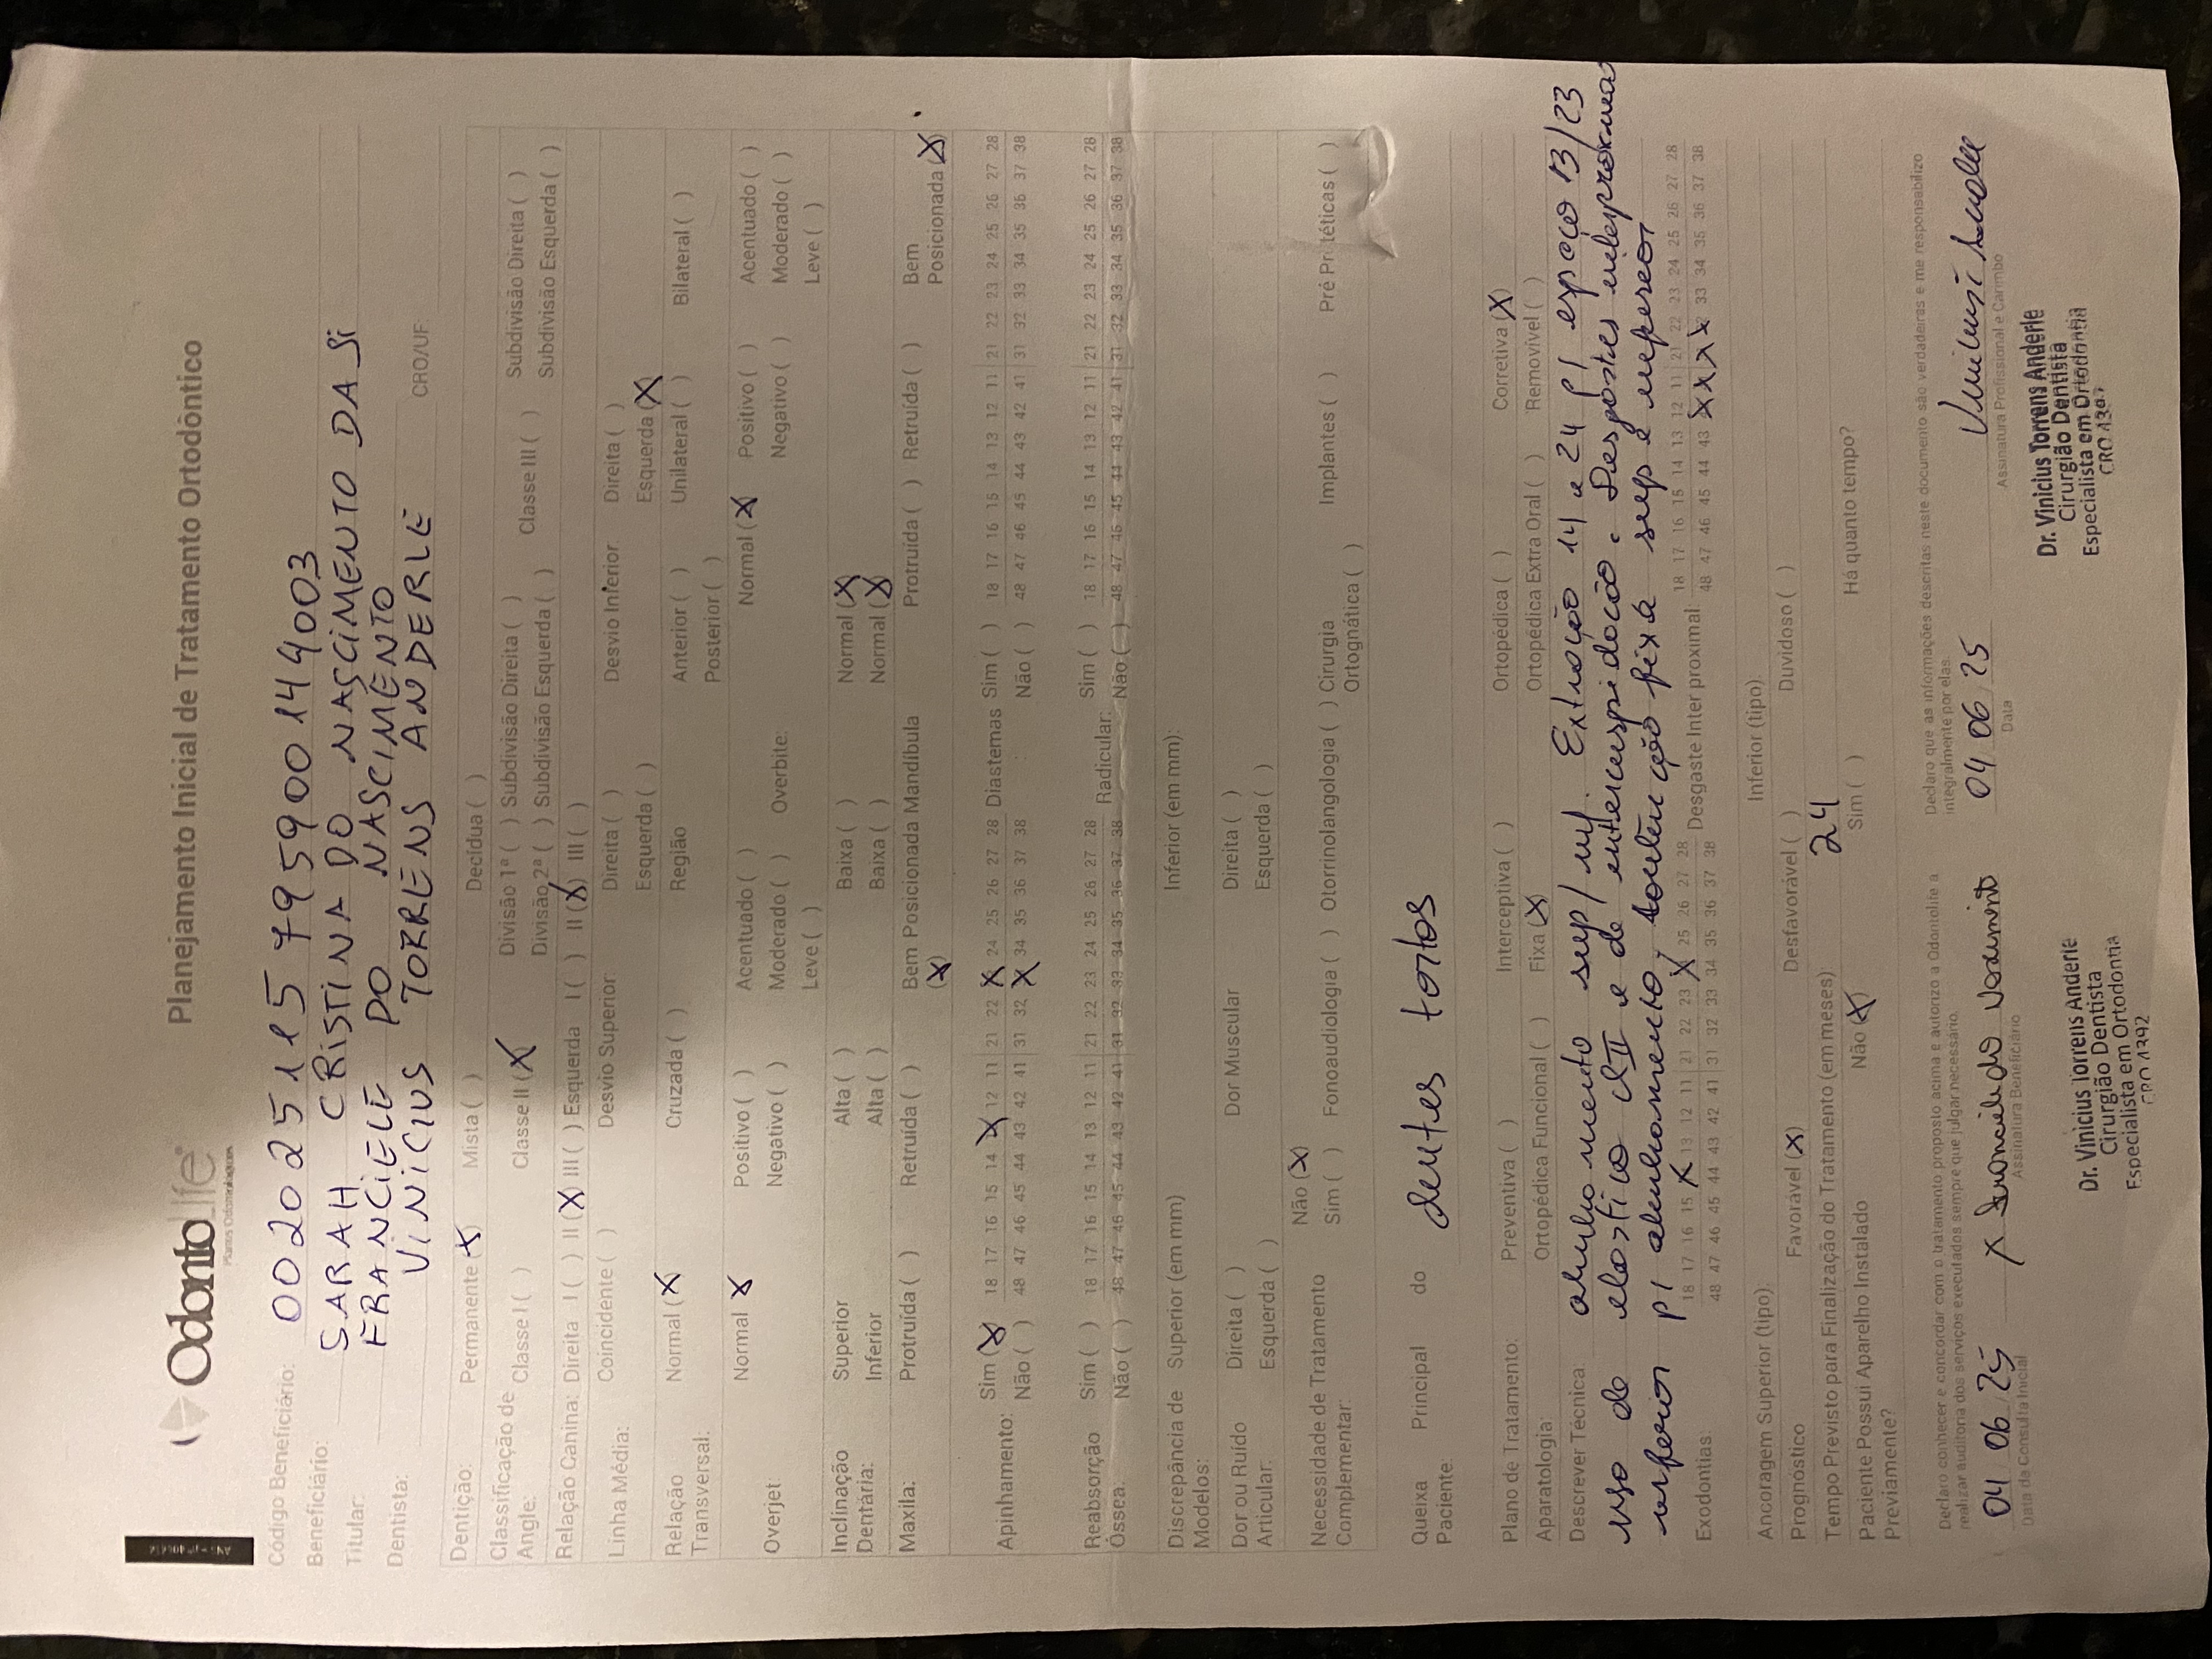 OdontoLife
Planos Odontológicos
Planejamento Inicial de Tratamento Ortodôntico
Código Beneficiário: 002025115795900144003
Beneficiário: SARAH CRISTINA DO NASCIMENTO DA Si
Titular: FRANCIELE DO NASCIMENTO
Dentista: VINICIUS TORRENS ANDERLE CRO/UF:
Dentição: Permanente (X) Mista ( ) Decídua ( )
Classificação de Angle: Classe I ( ) Classe II (X) Divisão 1ª ( ) Subdivisão Direita ( ) Classe III ( ) Subdivisão Direita ( )
Divisão 2ª ( ) Subdivisão Esquerda ( ) Subdivisão Esquerda ( )
Relação Canina: Direita I ( ) II (X) III ( ) Esquerda I ( ) II (X) III ( )
Linha Média: Coincidente ( ) Desvio Superior: Direita ( ) Desvio Inferior. Direita ( )
Esquerda ( ) Esquerda (X)
Relação Transversal: Normal (X) Cruzada ( ) Região Anterior ( ) Unilateral ( ) Bilateral ( )
Posterior ( )
Overjet: Normal X Positivo ( ) Acentuado ( ) Overbite: Normal (X) Positivo ( ) Acentuado ( )
Negativo ( ) Moderado ( ) Negativo ( ) Moderado ( )
Leve ( ) Leve ( )
Inclinação Dentária: Superior Alta ( ) Baixa ( ) Normal (X)
Inferior Alta ( ) Baixa ( ) Normal (X)
Maxila: Protruída ( ) Retruída ( ) Bem Posicionada (X) Mandíbula Protruída ( ) Retruída ( ) Bem Posicionada (X)
Apinhamento: Sim (X) 18 17 16 15 14 X 12 11 21 22 X 24 25 26 27 28 Diastemas Sim ( ) 18 17 16 15 14 13 12 11 21 22 23 24 25 26 27 28
Não ( ) 48 47 46 45 44 43 42 41 31 32 X 34 35 36 37 38 Não ( ) 48 47 46 45 44 43 42 41 31 32 33 34 35 36 37 38
Reabsorção Óssea: Sim ( ) 18 17 16 15 14 13 12 11 21 22 23 24 25 26 27 28 Radicular: Sim ( ) 18 17 16 15 14 13 12 11 21 22 23 24 25 26 27 28
Não ( ) 48 47 46 45 44 43 42 41 31 32 33 34 35 36 37 38 Não ( ) 48 47 46 45 44 43 42 41 31 32 33 34 35 36 37 38
Discrepância de Modelos: Superior (em mm) Inferior (em mm):
Dor ou Ruído Articular: Direita ( ) Dor Muscular Direita ( )
Esquerda ( ) Esquerda ( )
Necessidade de Tratamento Complementar: Não (X)
Sim ( ) Fonoaudiologia ( ) Otorrinolangologia ( ) Cirurgia Ortognática ( ) Implantes ( ) Pré Protéticas ( )
Queixa Principal do Paciente: dentes tortos
Plano de Tratamento: Preventiva ( ) Interceptiva ( ) Ortopédica ( ) Corretiva (X)
Aparatologia: Ortopédica Funcional ( ) Fixa (X) Ortopédica Extra Oral ( ) Removível ( )
Descrever Técnica: alinhamento sup/inf. Extração 14 e 24 p/ espaço 13/23
uso de elastico cl II e de intercuspidação. Desgastes interproximas
inferior p/ alinhamento, contenção fixa sup e superior
Exodontias 18 17 16 15 X 13 12 11 21 22 23 X 25 26 27 28 Desgaste Inter proximal 18 17 16 15 14 13 12 11 21 22 23 24 25 26 27 28
48 47 46 45 44 43 42 41 31 32 33 34 35 36 37 38 48 47 46 45 44 43 X X X X 33 34 35 36 37 38
Ancoragem Superior (tipo): Inferior (tipo)
Prognóstico Favorável (X) Desfavorável ( ) Duvidoso ( )
Tempo Previsto para Finalização do Tratamento (em meses) 24
Paciente Possui Aparelho Instalado Previamente? Não (X) Sim ( ) Há quanto tempo?
Declaro conhecer e concordar com o tratamento proposto acima e autorizo a Odontolife a
realizar auditoria dos serviços executados sempre que julgar necessário.
04 06 25
Data da Consulta Inicial
Assinatura Beneficiário
Declaro que as informações descritas neste documento são verdadeiras e me responsabilizo
integralmente por elas.
04 06 25
Data
Assinatura Profissional e Carimbo
Dr. Vinicius Torrens Anderle
Cirurgião Dentista
Especialista em Ortodontia
Dr. Vinicius Torrens Anderle
Cirurgião Dentista
Especialista em Ortodontia